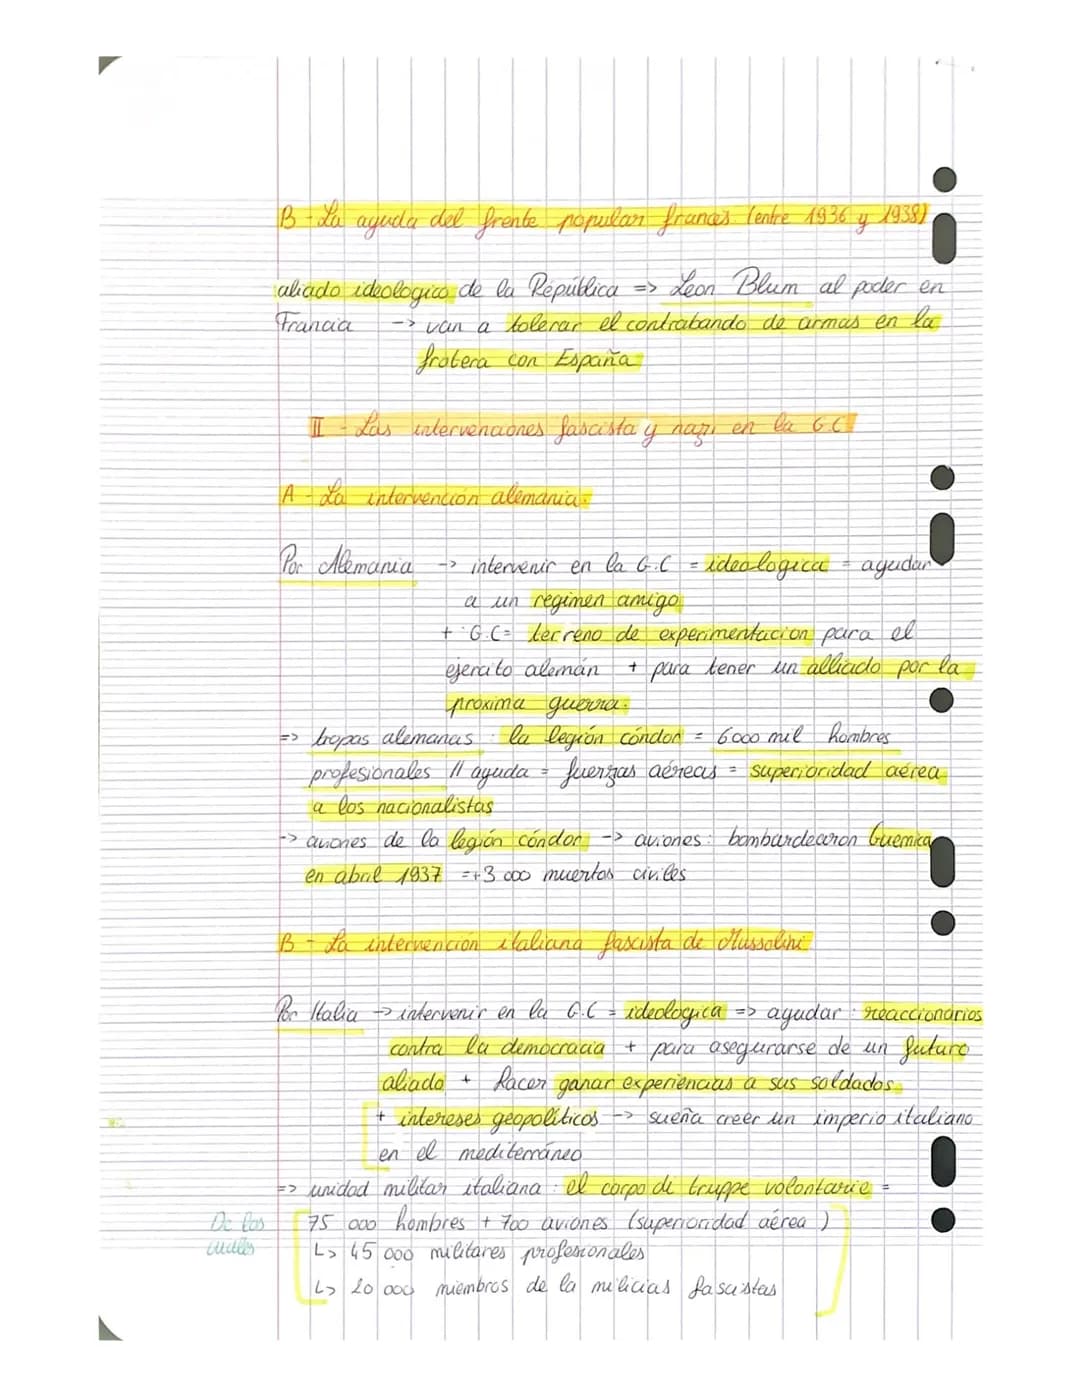 B - La ayuda del frente popular frances (entre 1936 y 1938)
aliado ideologico de la República => Leon Blum al poder en
Francia -> van a tolerar el contrabando de armas en la
frotera con España
II - Las intervenciones fascista y nazi en la G.C
A - La intervención alemania.
Por Alemania -> intervenir en la G.C = ideologica = ayudar
a un regimen amigo
+ G.C = terreno de experimentacion para el
ejercito alemán + para tener un alliado por la
próxima guerra.
=> tropas alemanas : la legión cóndor = 6000 mil hombres
profesionales // ayuda = fuerzas aéreas = superioridad aérea
a los nacionalistas
-> aviones de la legión cóndor -> aviones : bombardearon Guernica
en abril 1937 =+3 000 muertos civiles
B - La intervención italiana fascista de Mussolini
Por Italia -> intervenir en la G.C = ideologica => ayudar : reaccionarios
contra la democracia + para asegurarse de un futuro
aliado + hacer ganar experiencias a sus soldados
+ intereses geopolíticos -> sueña creer un imperio italiano
en el mediterráneo
=> unidad militar italiana : el corpo di truppe volontarie =
De las 75 000 hombres + 700 aviones (superioridad aérea )
cuales L> 45 000 militares profesionales
L> 20 000 miembros de la milicias fascistas